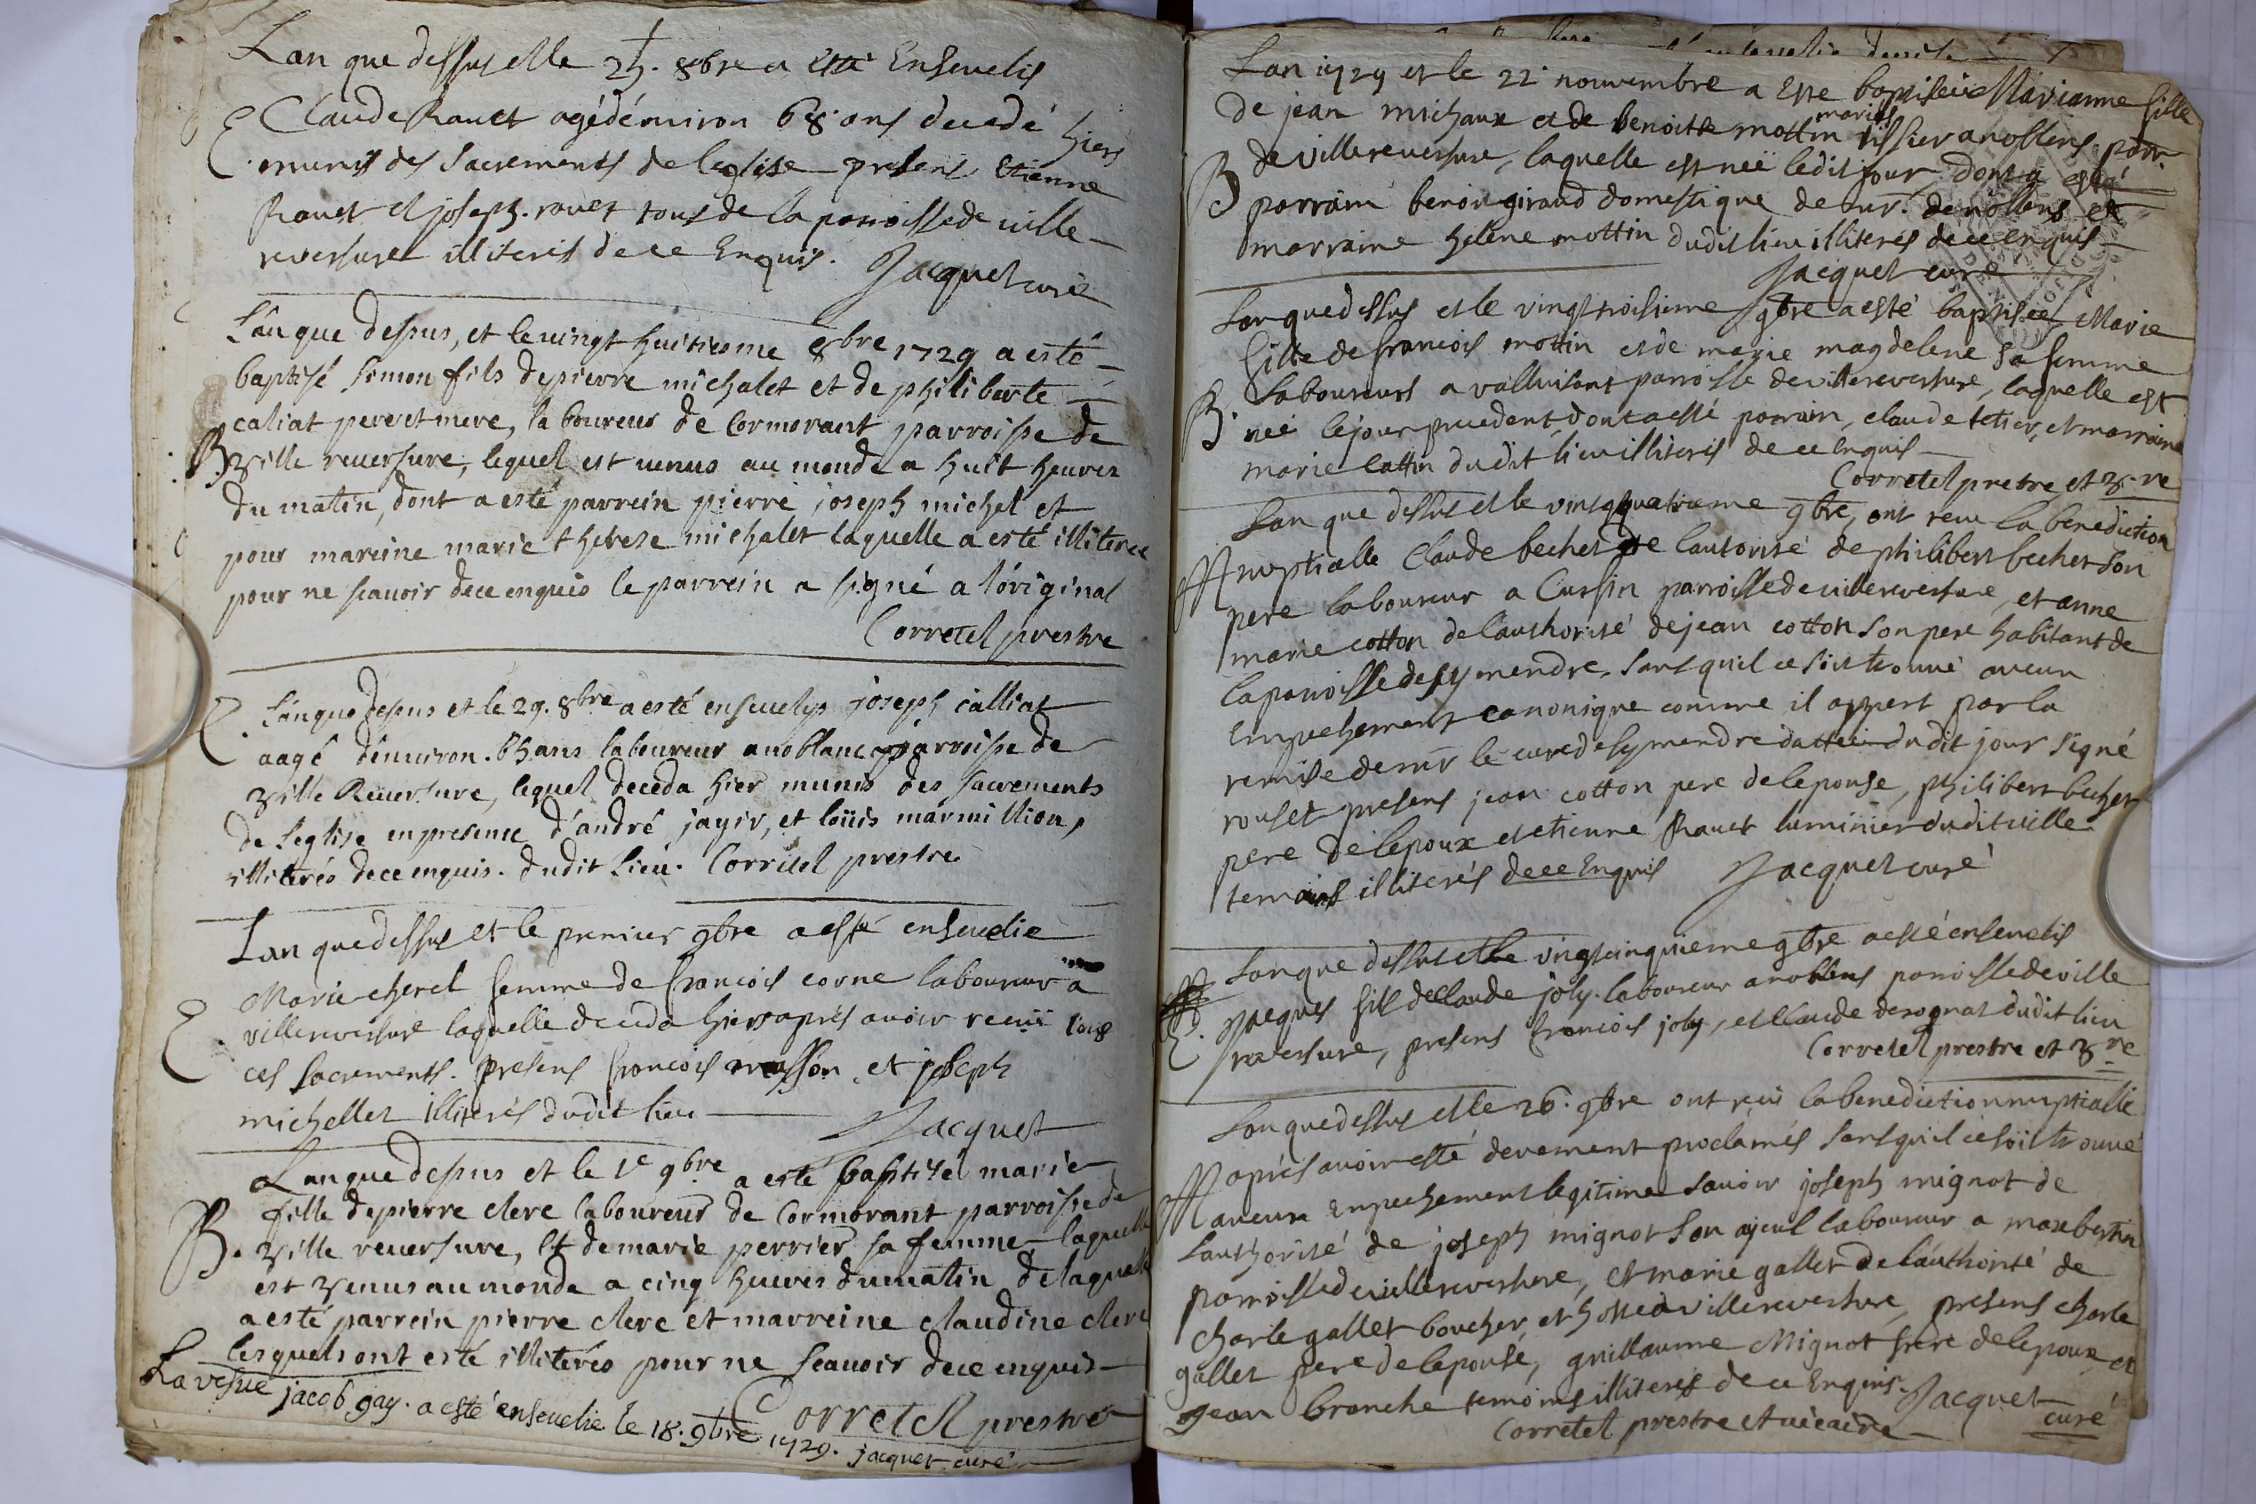 Lan que dessus et le 25. 8bre a esté Ensevelis
E Claude Ravet agé dénviron 68 ans decedé hiers
munis des Sacrements de leglise presens Etienne
Ravet et joseph ravet tous de la parroisse de ville
reversure illiterés de ce Enquis. Jacquet curé
Lán que dessus, et le vingt huitiesme 8bre 1729 a esté
baptisé Simon fils de pierre michalet et de philiberte
caliat pere et mere, laboureur de Cormorant parroisse de
B. ville reversure, lequel est venus au monde a huit heures
du matin, dont a esté parrein pierre joseph michel et
pour mareine marie therese michalet laquelle a esté illiteree
pour ne scavoir de ce enquis le parrein a signé a lóriginal
Corretel prestre
E. Lánque dessus et le 29. 8bre a esté ensevelys joseph calliat
aagé dénviron. 65 ans laboureur a noblanc parroisse de
ville Reversure, lequel deceda hier munis des sacrements
de leglise en presence d'andré jayir, et loüis mármillion,
illiterés de ce enquis. dudit lieu. Corretel prestre
Lan que dessus et le premier 9bre a esté ensevelie
Marie cheret femme de francois corne laboureur a
E. villereversure laquelle deceda hiers aprés avoir receü tous
ces sacrements. presens francois masson et joseph
michellet illiterés dudit lieu Jacquet
Lan que dessus et le 1e 9bre a esté baptisé marie
fille de pierre clerc laboureur de Cormorant parroisse de
B. ville reversure, et de marie perrier sa femme laquelle
est venus au monde a cinq heures du matin de laquelle
a esté parrein pierre clerc et marreine claudine clerc
lesquels ont esté illiterés pour ne scavoir de ce enquis
Corretel prestre
La vefve jacob gay. a esté ensevelie le 18. 9bre 1729. jacquet curé
Lan 1729 et le 22 nouvembre a Este baptiseé Marianne fille
de jean michaux et de benoitte mottin mariés tissier a noblens parr.
B de villereversure, laquelle est neé ledit jour dont a esté
parrain benoi giraud domestique de mr. de noblens et
marraine helene mottin dudit lieu illiterés de ce enquis
Jacquet curé
Lan que dessus et le vingt troisieme 9bre a esté baptisee Marie
fille de francois mottin et de marie magdelene sa femme
laboureurs a valluisant parroisse de villereversure, laquelle est
B. neé le jour precedent, dont a esté parrain, claude tetier, et marraine
marie Cattin dudit lieu illiterés de ce Enquis
Corretel pretre et v.re
Lan que dessus et le vingt quatrieme 9bre, ont receu la benediction
M nuptialle Claude becher de lautorisé de philibert becher son
pere laboureur a Cursin parroisse de villereversure, et anne
marie cotton de l'authorisé de jean cotton son pere habitant de
la parroisse de symendre, sans quil ce soit trouvé aucun
empechement canonique comme il appert par la
remise de mr le curé de symendre dattée dudit jour signé
rouset presens jean cotton pere de lepouse, philibert becher
pere de lepoux et etienne Ravet luminier dudit ville
temoins illiterés de ce Enquis Jacquet curé
Lan que dessus et le vingt cinquieme 9bre a esté ensevelis
E. Jacques fils de Claude joly. laboureur a noblens parroisse de ville
reversure, presens francois joly, et Claude desognat dudit lieu
Corretel prestre et v.re
Lan que dessus et le 26. 9bre ont reçu la benediction nuptialle
M aprés avoir esté devement proclamés sans quil ce soit trouvé
aucun empechement legitime savoir joseph mignot de
lauthorisé de joseph mignot son ayeul laboureur a maxebertin
parroisse de villereversure, et marie gallet de láuthorité de
charle gallet boucher et hoste a villereversure, presens charle
gallet pere de lepouse, guillaume Mignot frere de lepoux et
jean branche temoins illiterés de ce Enquis. Jacquet curé
Corretel prestre et vicaire